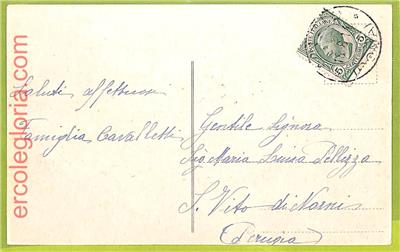 ercolegloria.com
Saluti affettuosi
Famiglia Cavalletti
Gentile Signora
Sig. Maria Luisa Pellizza
S. Vito di Narni
Perugia